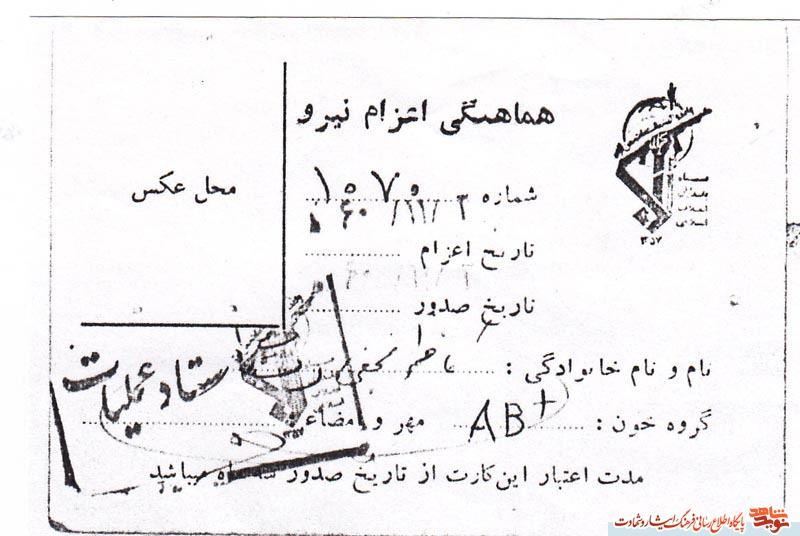 هماهنگی اعزام نیرو
محل عکس
شماره ۱۵۷۰
۶۰/۱۱/۳
تاریخ اعزام
تاریخ صدور
نام و نام خانوادگی :
گروه خون : AB+ مهر و امضاء
ستاد عملیات
مدت اعتبار این کارت از تاریخ صدور ماه میباشد
سپاه
پاسداران
انقلاب
اسلامی
۱۳۵۷
نوید شاهد پایگاه اطلاع رسانی فرهنگ ایثار و شهادت